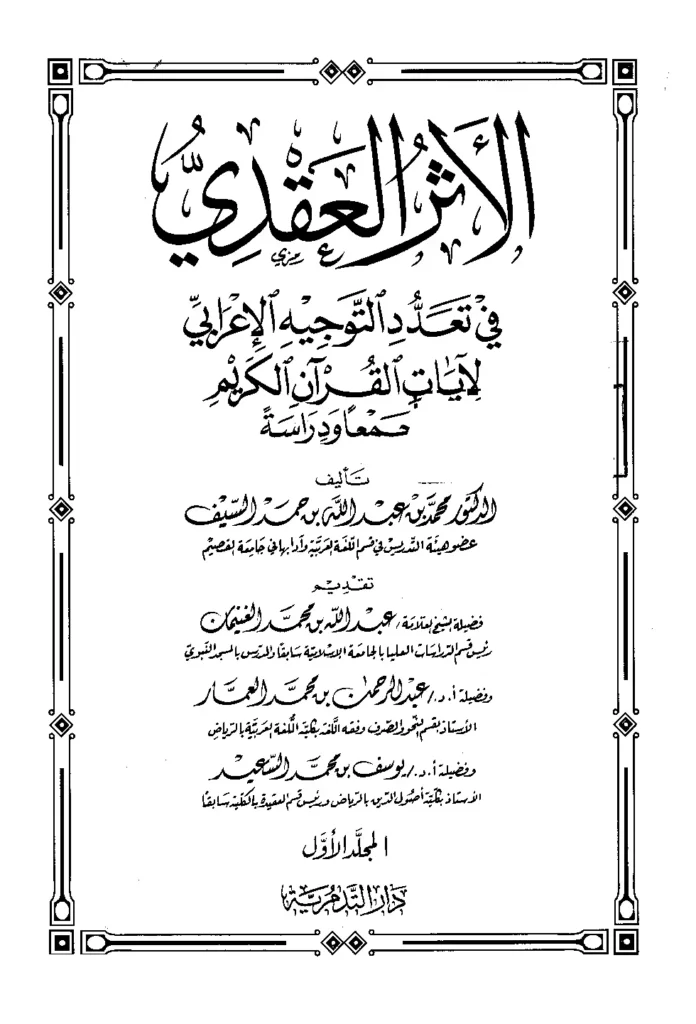 الأَثَرُ العَقَدِيُّ
فِي تَعَدُّدِ التَّوْجِيهِ الإِعْرَابِيِّ
لِآيَاتِ القُرْآنِ الكَرِيْمِ
جَمْعًا وَدِرَاسَةً
تأليف
الدكتور محمد بن عبد الله بن حمد السيف
عضو هيئة التدريس في قسم اللغة العربية وآدابها في جامعة القصيم
تقديم
فضيلة الشيخ العلامة / عبد الله بن محمد الغنيمان
رئيس قسم الدراسات العليا بالجامعة الإسلامية سابقًا والمدرس بالمسجد النبوي
وفضيلة أ. د. / عبد الرحمن بن محمد العمار
الأستاذ بقسم النحو والصرف وفقه اللغة بكلية اللغة العربية بالرياض
وفضيلة أ. د. / يوسف بن محمد السعيد
الأستاذ بكلية أصول الدين بالرياض ورئيس قسم العقيدة بالكلية سابقًا
المجلد الأول
دار التدمرية